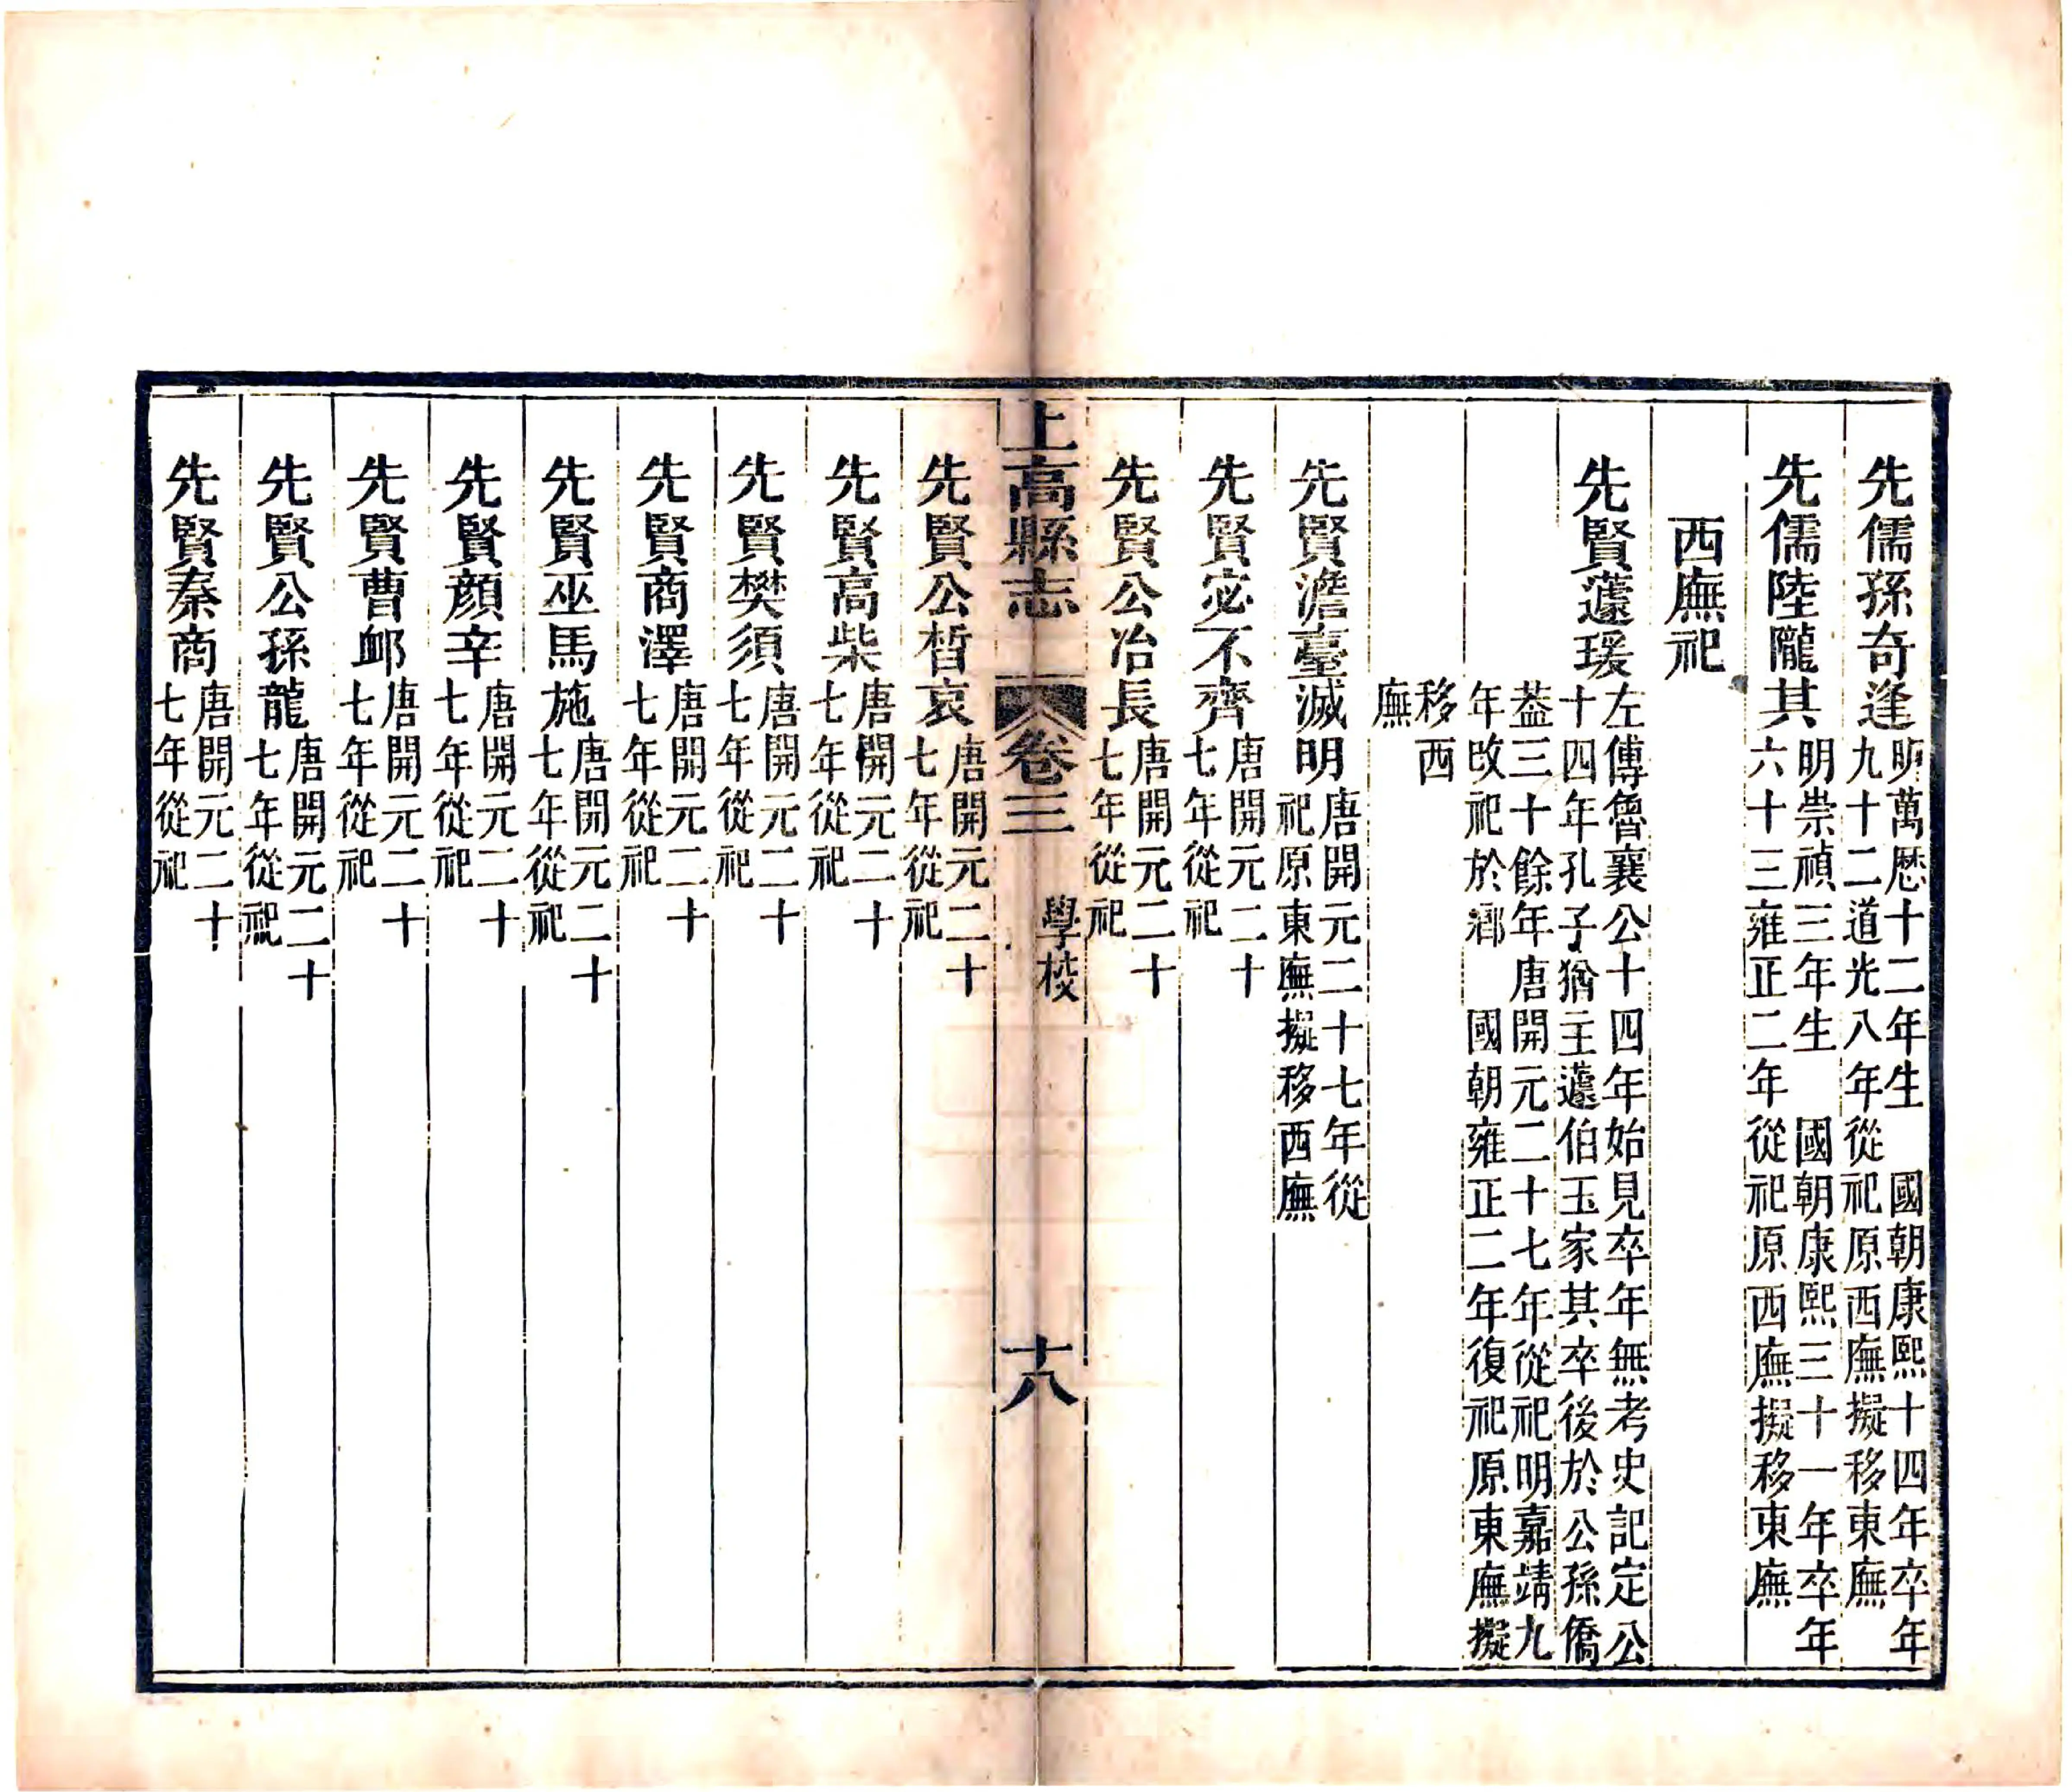 先儒孫奇逢明萬歷十二年生　國朝康熙十四年卒年
九十二道光八年從祀原西廡擬移東廡
先儒陸隴其明崇禎三年生　國朝康熙三十一年卒年
六十三雍正二年從祀原西廡擬移東廡
西廡祀
先賢蘧瑗左傳魯襄公十四年始見卒年無考史記定公
十四年孔子猶主蘧伯玉家其卒後於公孫僑
葢三十餘年唐開元二十七年從祀明嘉靖九
年改祀於鄉　國朝雍正二年復祀原東廡擬
移西
廡
先賢澹臺滅明唐開元二十七年從
祀原東廡擬移西廡
先賢宓不齊唐開元二十
七年從祀
先賢公冶長唐開元二十
七年從祀
上高縣志　卷三　學校　十八
先賢公晳哀唐開元二十
七年從祀
先賢高柴唐開元二十
七年從祀
先賢樊須唐開元二十
七年從祀
先賢商澤唐開元二十
七年從祀
先賢巫馬施唐開元二十
七年從祀
先賢顔辛唐開元二十
七年從祀
先賢曹卹唐開元二十
七年從祀
先賢公孫龍唐開元二十
七年從祀
先賢秦商唐開元二十
七年從祀